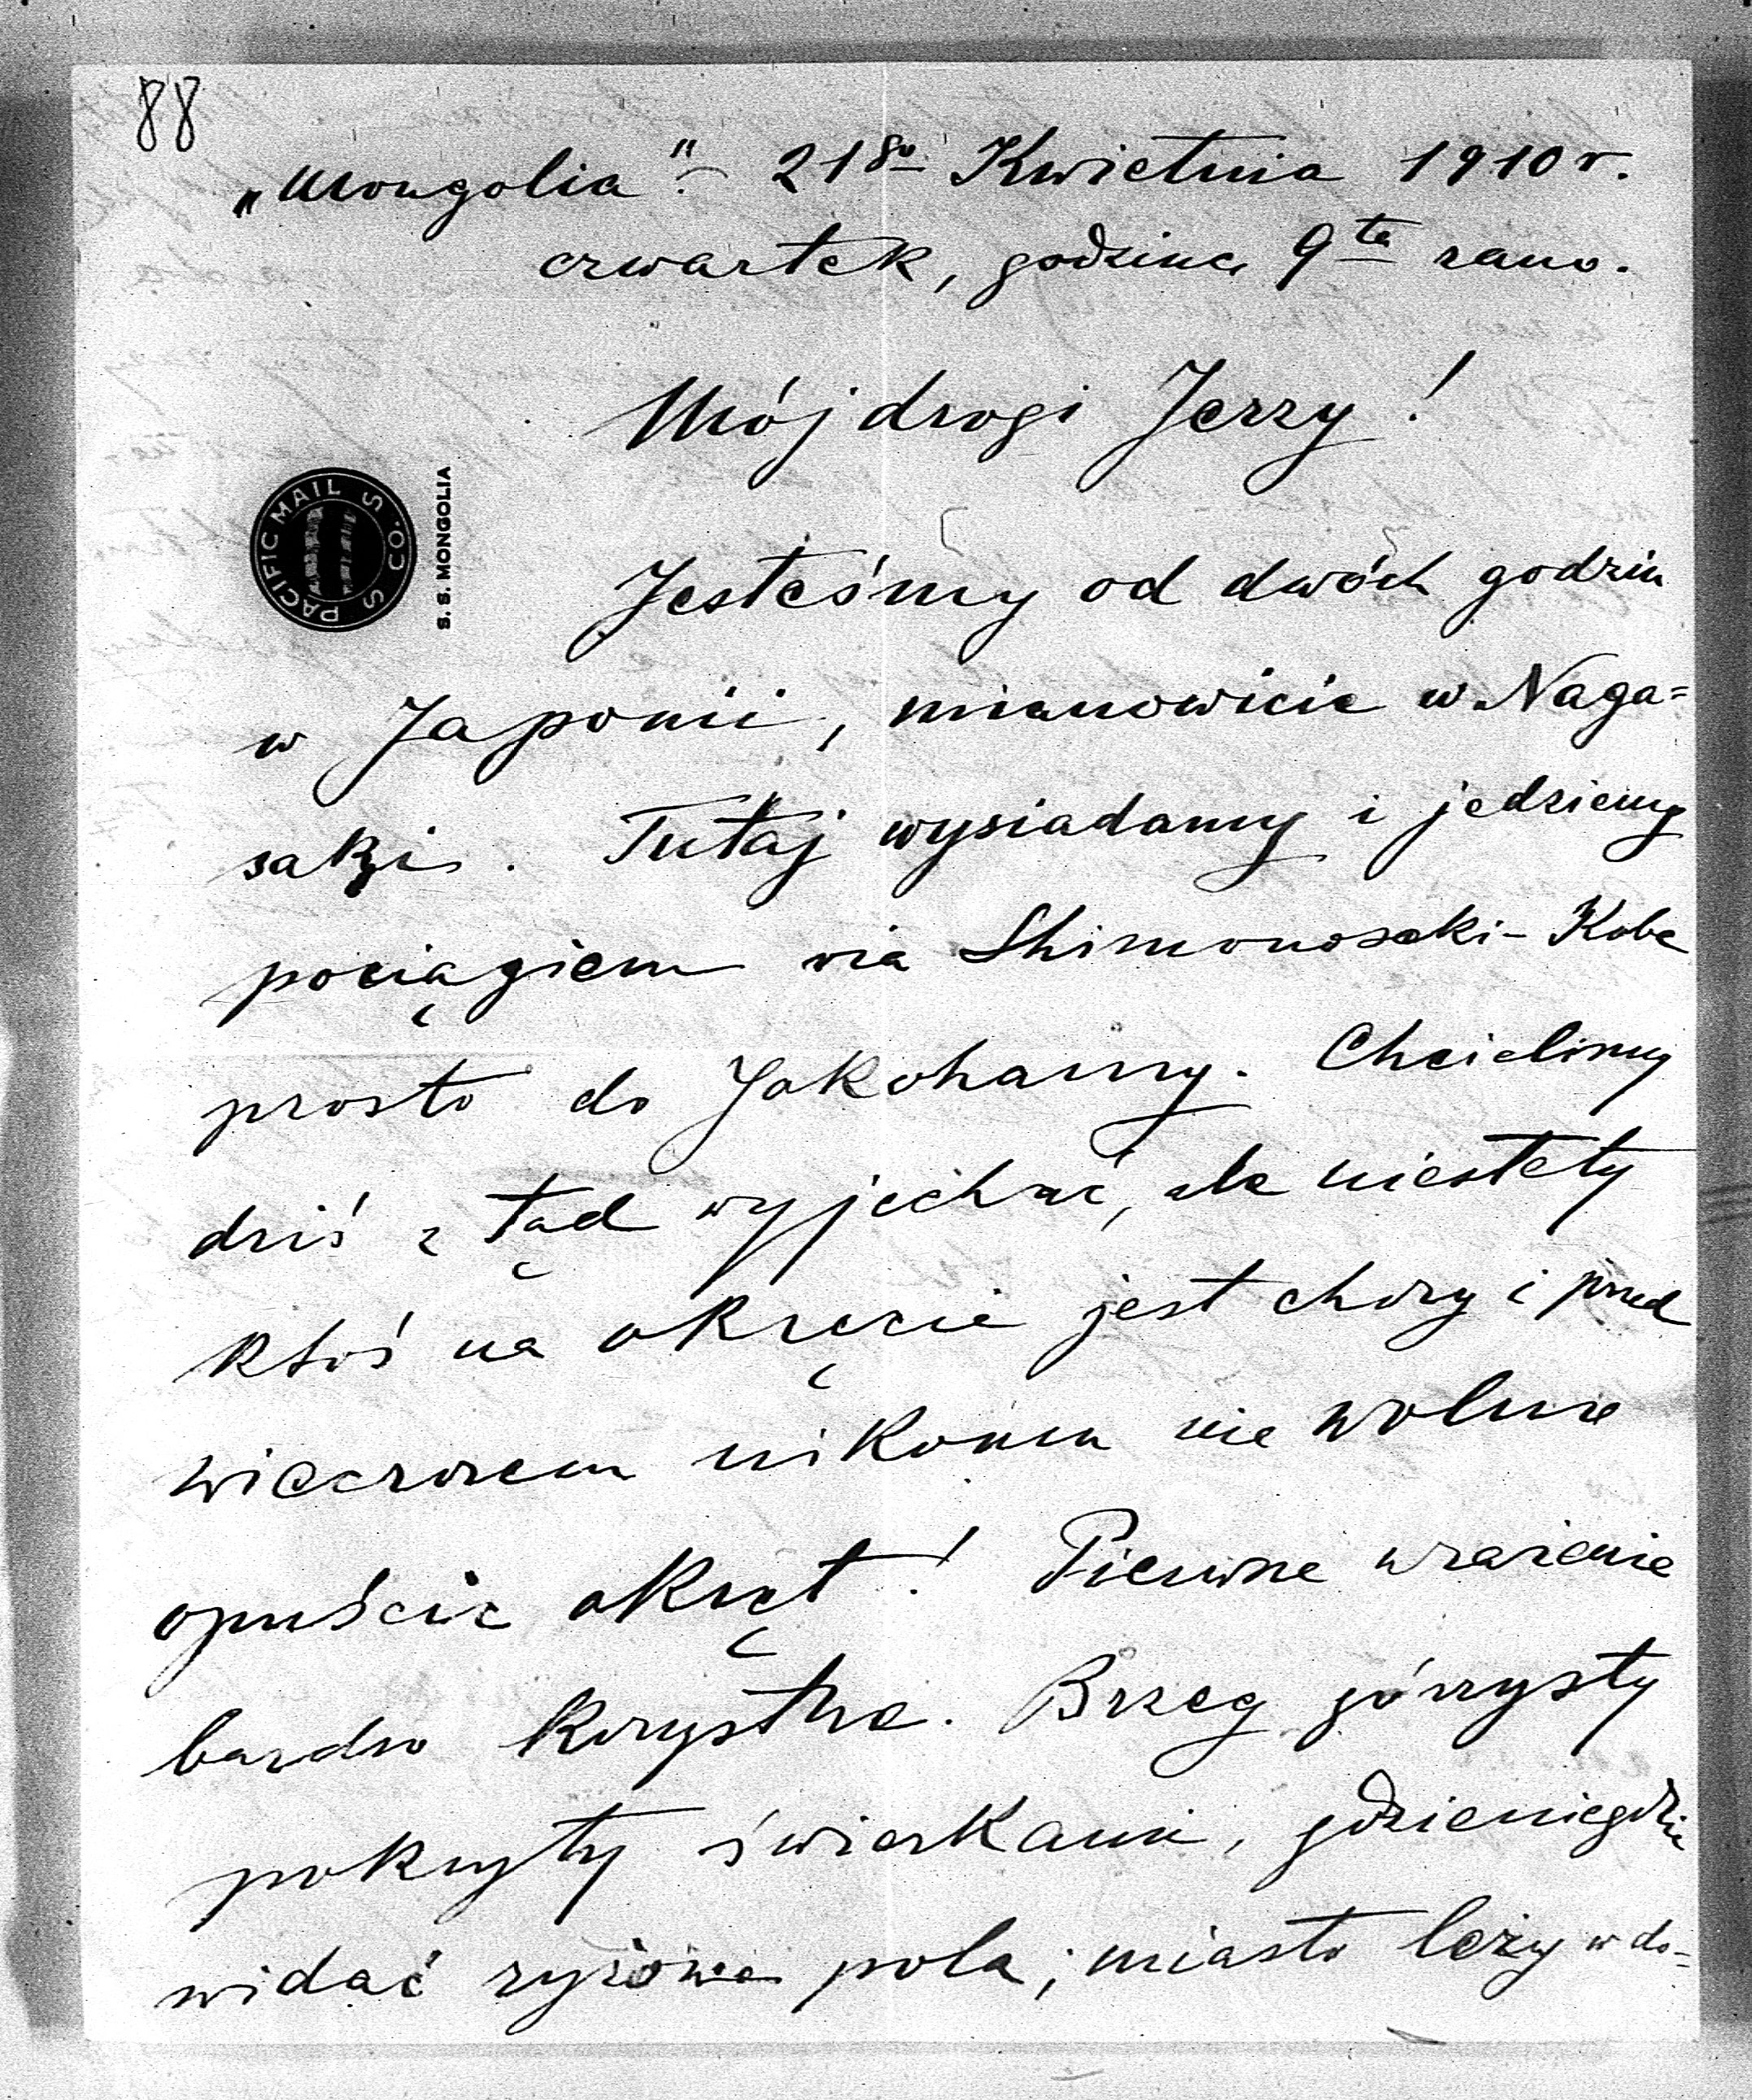 88
„Mongolia". 21go Kwietnia 1910 r.
czwartek, godzina 9ta rano.
Mój drogi Jerzy!
PACIFIC MAIL S. S. CO.
S. S. MONGOLIA
Jesteśmy od dwóch godzin
w Japonii, mianowicie w Naga=
saki. Tutaj wysiadamy i jedziemy
pociągiem via Shimonoseki - Kobe
prosto do Jokohamy. Chcieliśmy
dziś z tąd wyjechać, ale niestety
ktoś na okręcie jest chory i przed
wieczorem nikomu nie wolno
opuścić okręt! Pierwsze wrażenie
bardzo korzystne. Brzeg górzysty
pokryty świerkami, gdzieniegdzie
widać ryżowe pola; miasto leży w do=